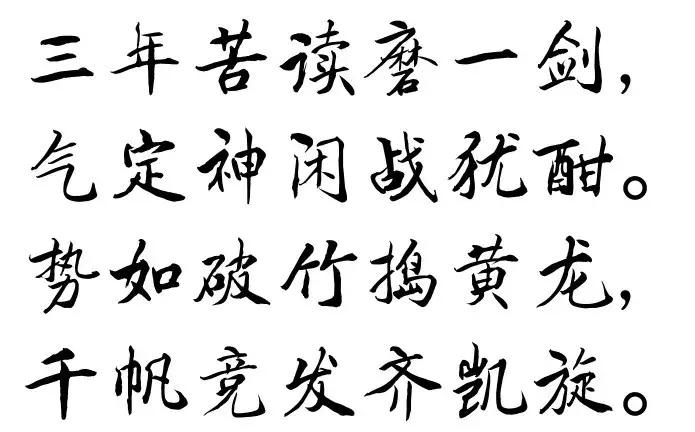 三年苦读磨一剑，
气定神闲战犹酣。
势如破竹捣黄龙，
千帆竞发齐凯旋。